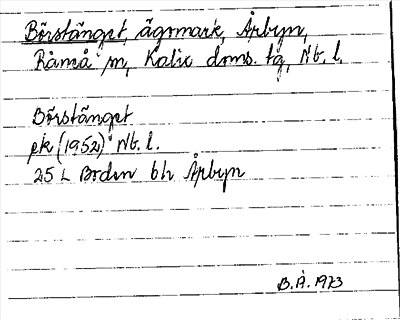 Börstänget, ägomark, Årbyn,
Råneå sn, Kalix doms. tg, Nb. l.
Börstänget
ek (1952) Nb. l.
25 L Boden bl Årbyn
B.Å. 1973